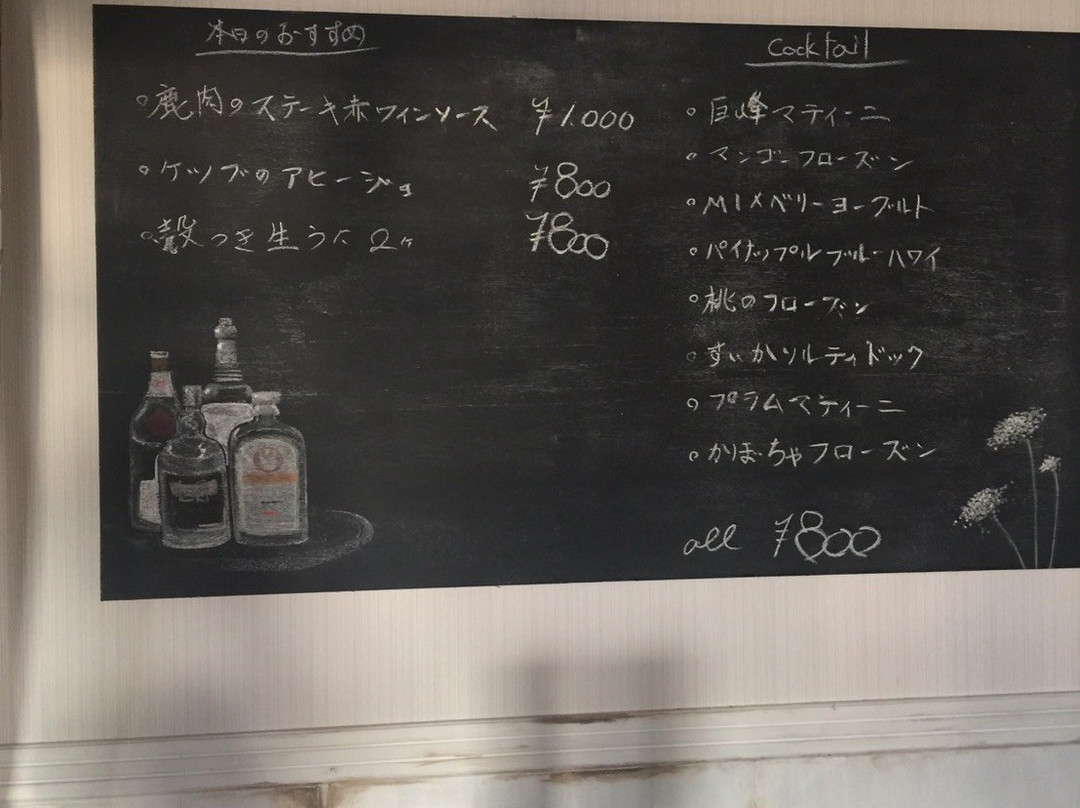 本日のおすすめ
○鹿肉のステーキ赤ワインソース ¥1.000
○ケツブのアヒージョ ¥800
○殻つき生うに 2ヶ ¥800
Cocktail
○巨峰マティーニ
○マンゴーフローズン
○MIXベリーヨーグルト
○パイナップルブルーハワイ
○桃のフローズン
○すいかソルティドック
○プラムマティーニ
○かぼちゃフローズン
all ¥800